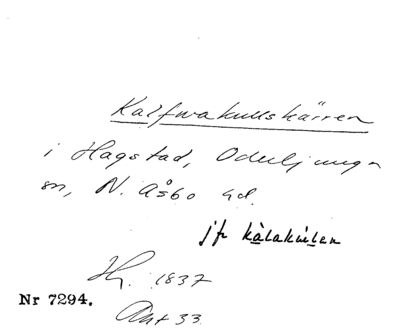 Kalfwakullskärren
i Hagstad, Oderljunga
sn, N. Åsbo hd.
jfr kàlakùlen
Hy. 1837
Nr 7294.
Akt 33